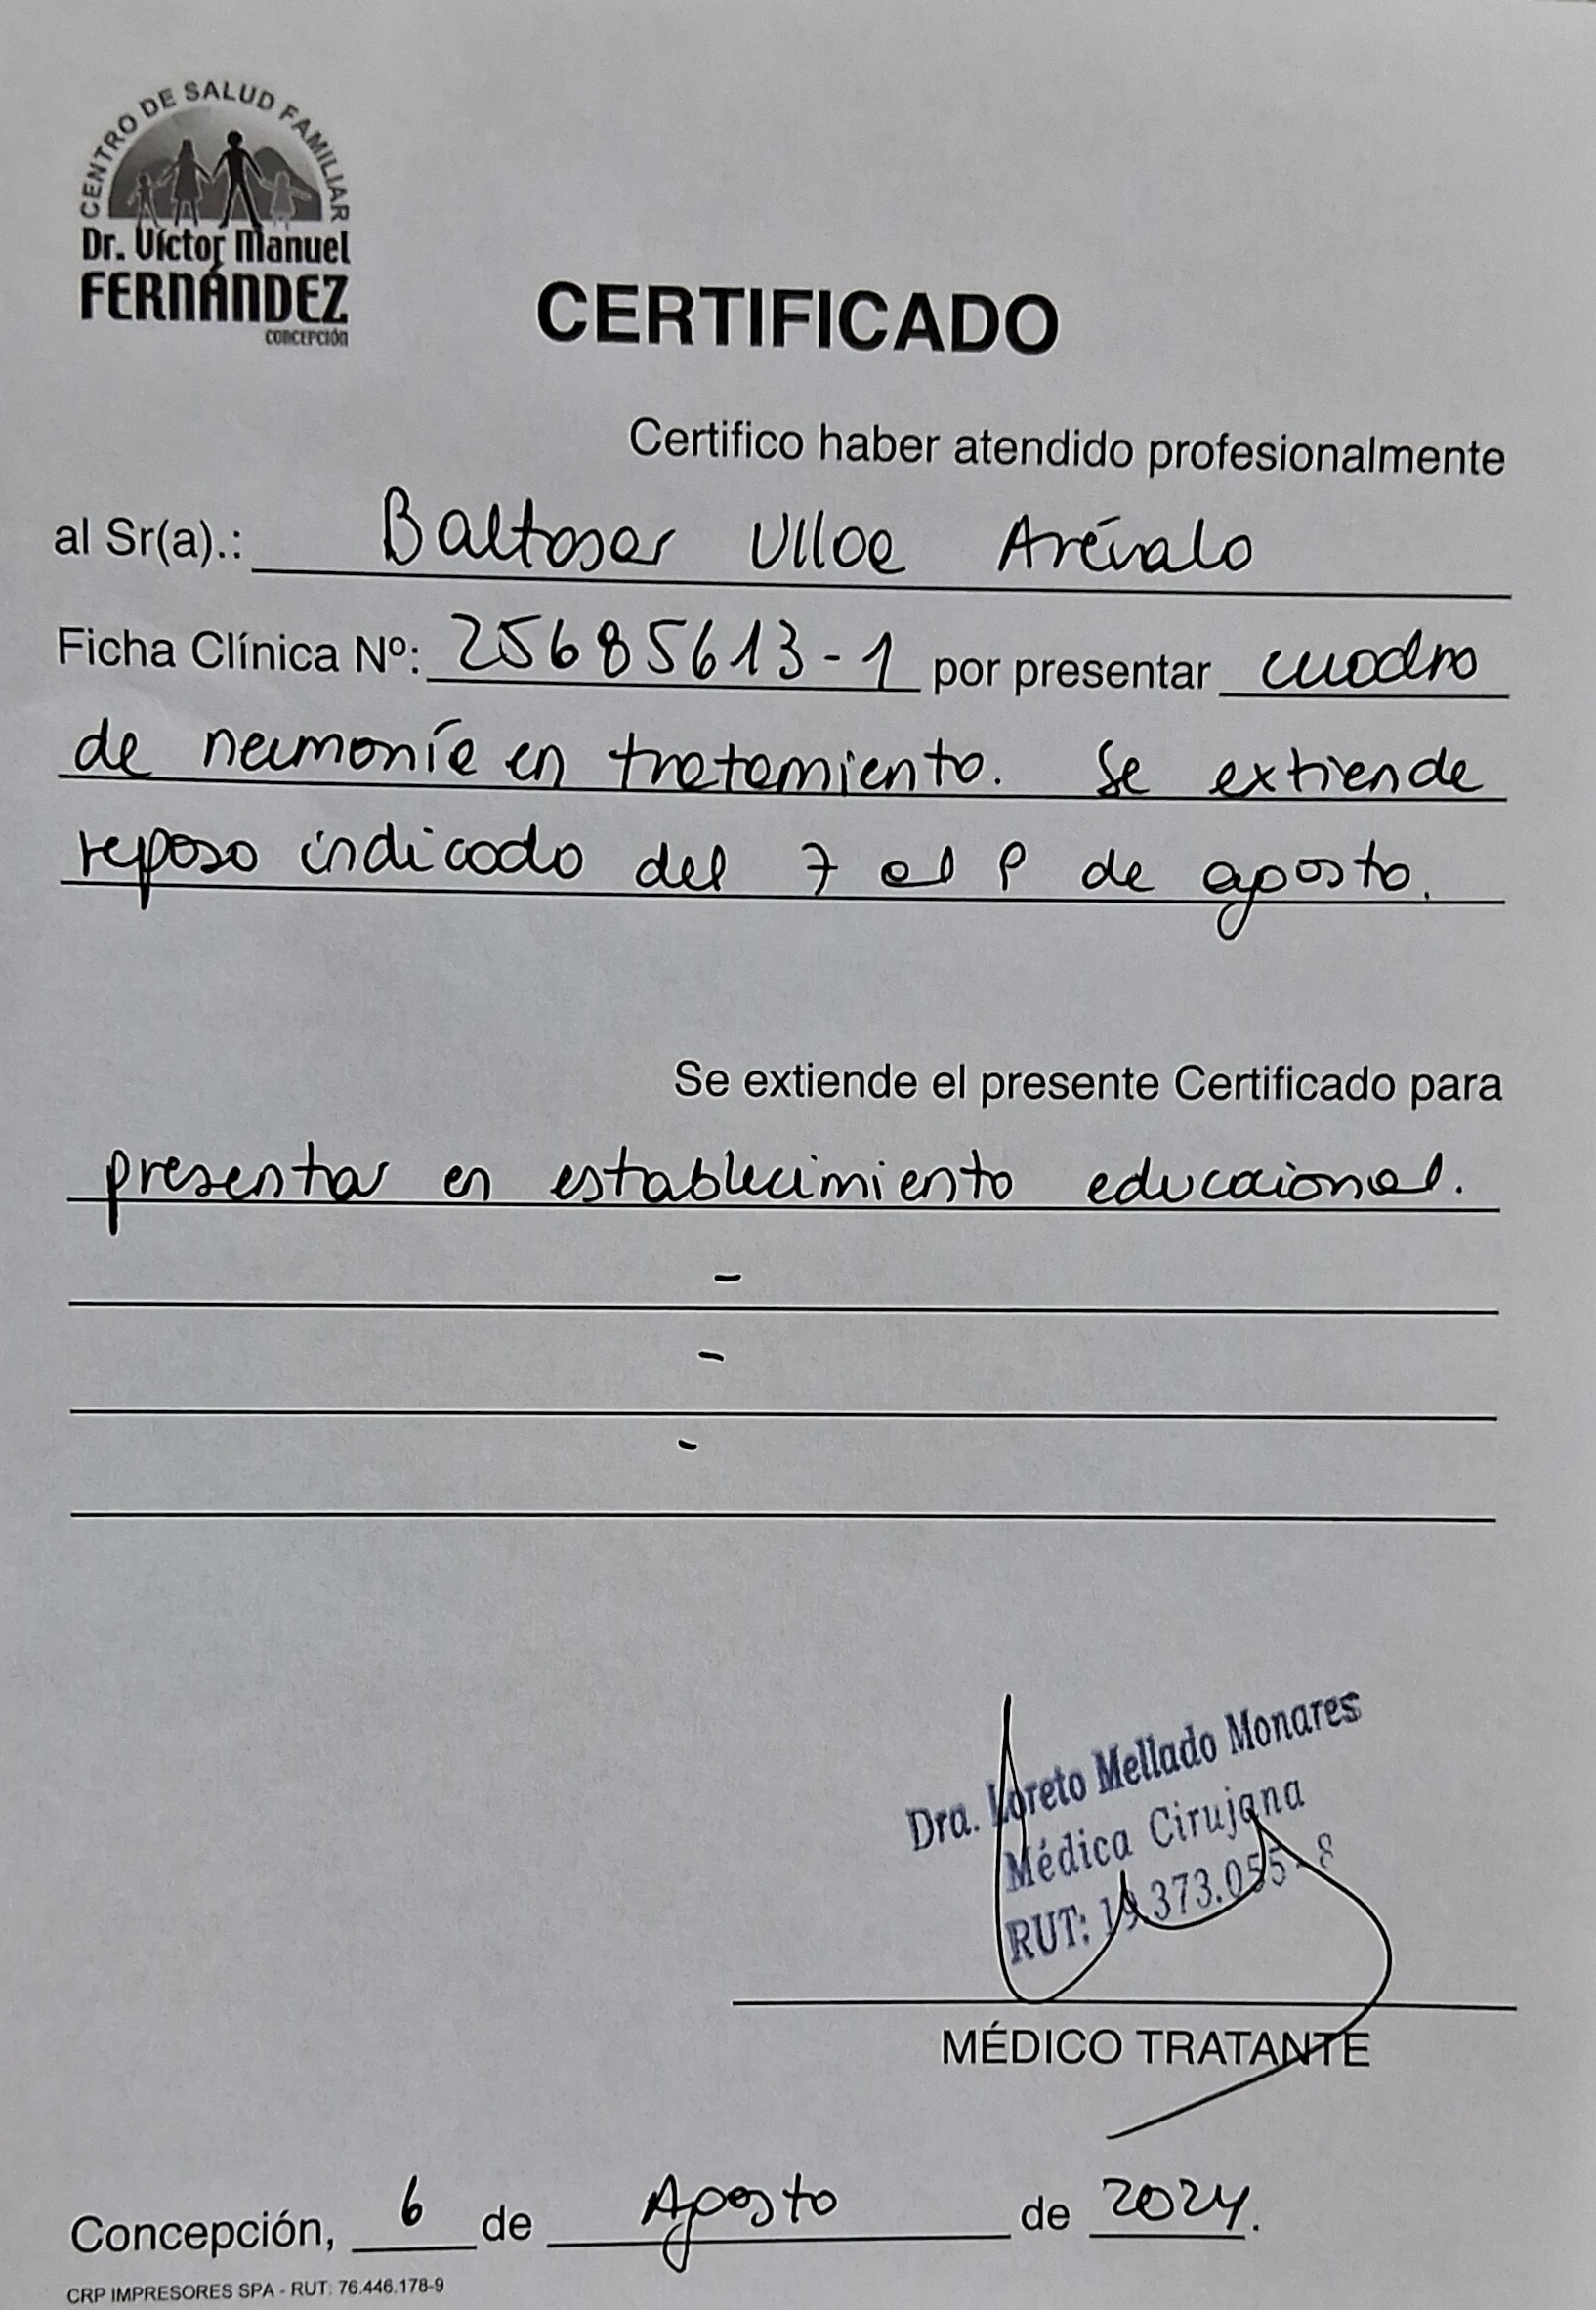 CENTRO DE SALUD FAMILIAR
Dr. Víctor Manuel
FERNÁNDEZ
CONCEPCIÓN
CERTIFICADO
Certifico haber atendido profesionalmente
al Sr(a).: Baltasar Ulloa Arévalo
Ficha Clínica Nº: 25685613-1 por presentar cuadro
de neumonía en tratamiento. Se extiende
reposo indicado del 7 al 9 de agosto.
Se extiende el presente Certificado para
presentar en establecimiento educacional.
-
-
-
Dra. Loreto Mellado Monares
Médica Cirujana
RUT: 19.373.055-8
MÉDICO TRATANTE
Concepción, 6 de Agosto de 2024.
CRP IMPRESORES SPA - RUT: 76.446.178-9